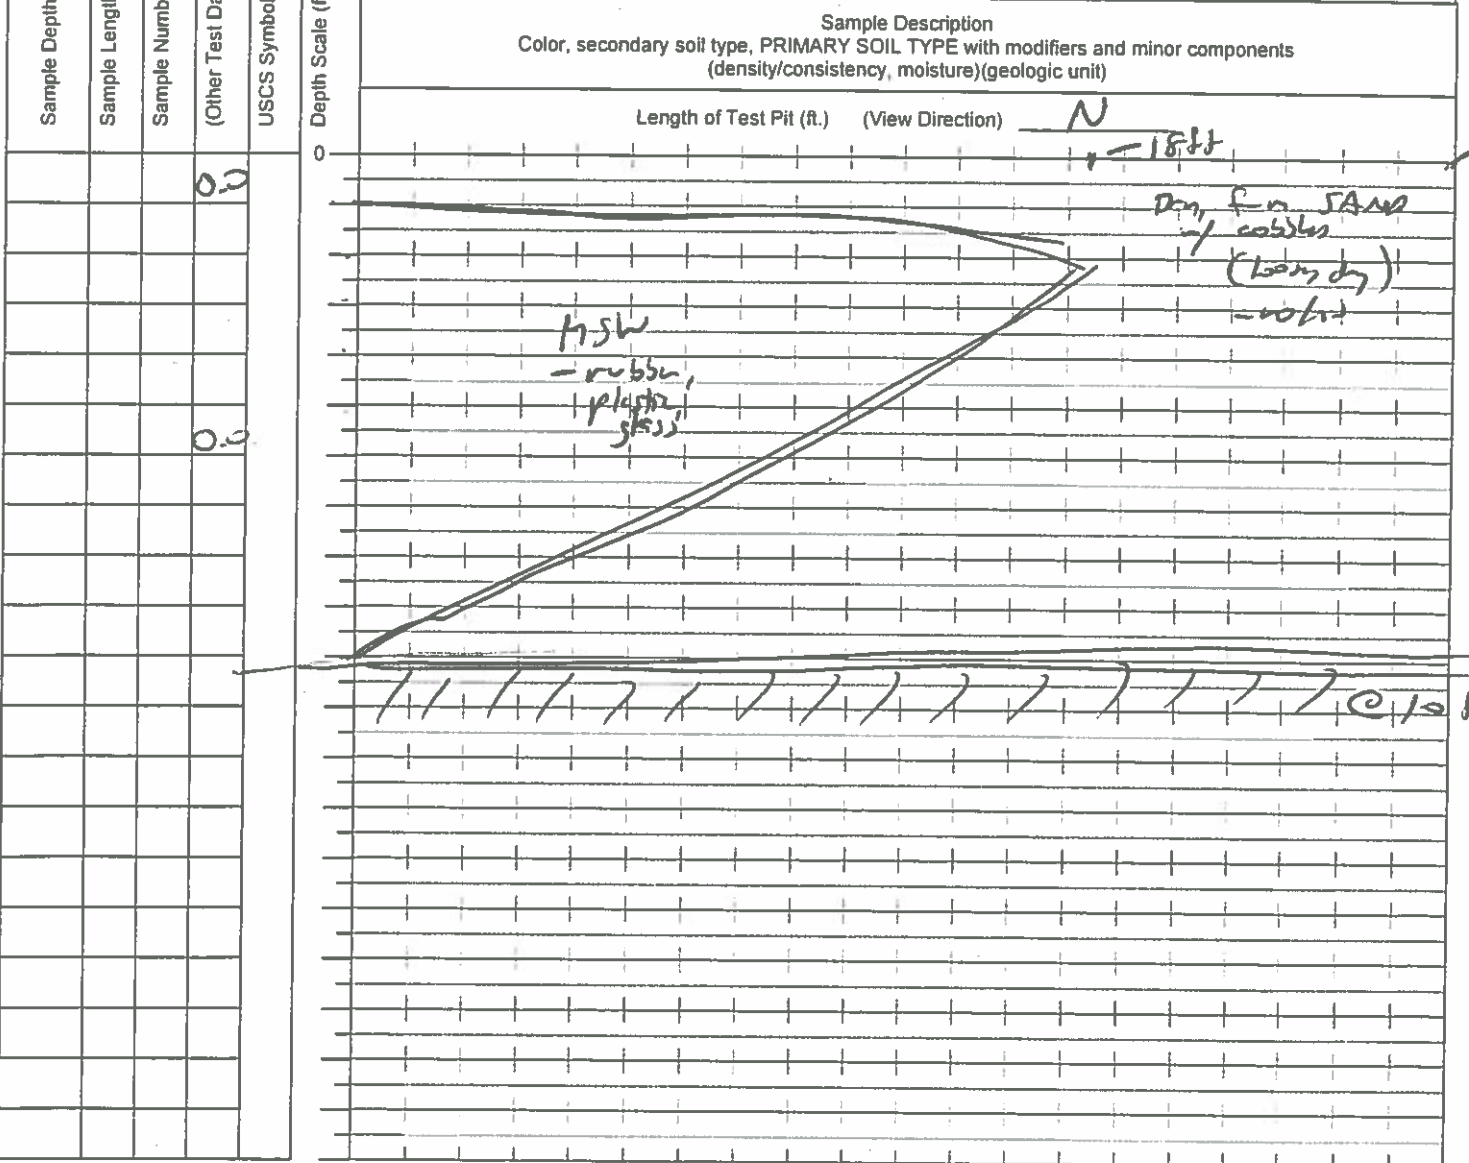 Sample Depth
Sample Length
Sample Numb
(Other Test Da
USCS Symbol
Depth Scale (f
Sample Description
Color, secondary soil type, PRIMARY SOIL TYPE with modifiers and minor components
(density/consistency, moisture)(geologic unit)
Length of Test Pit (ft.) (View Direction) N
0
18ft
0.0
f-m SAND
w/ cobbles
(loose, dry)
MSW
- rubber,
plastic,
glass
0.0
@ 10 f